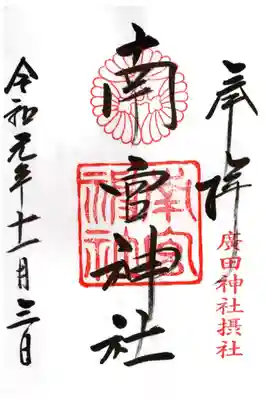 奉拝
廣田神社摂社
南宮神社
南宮神社
令和元年十一月三日